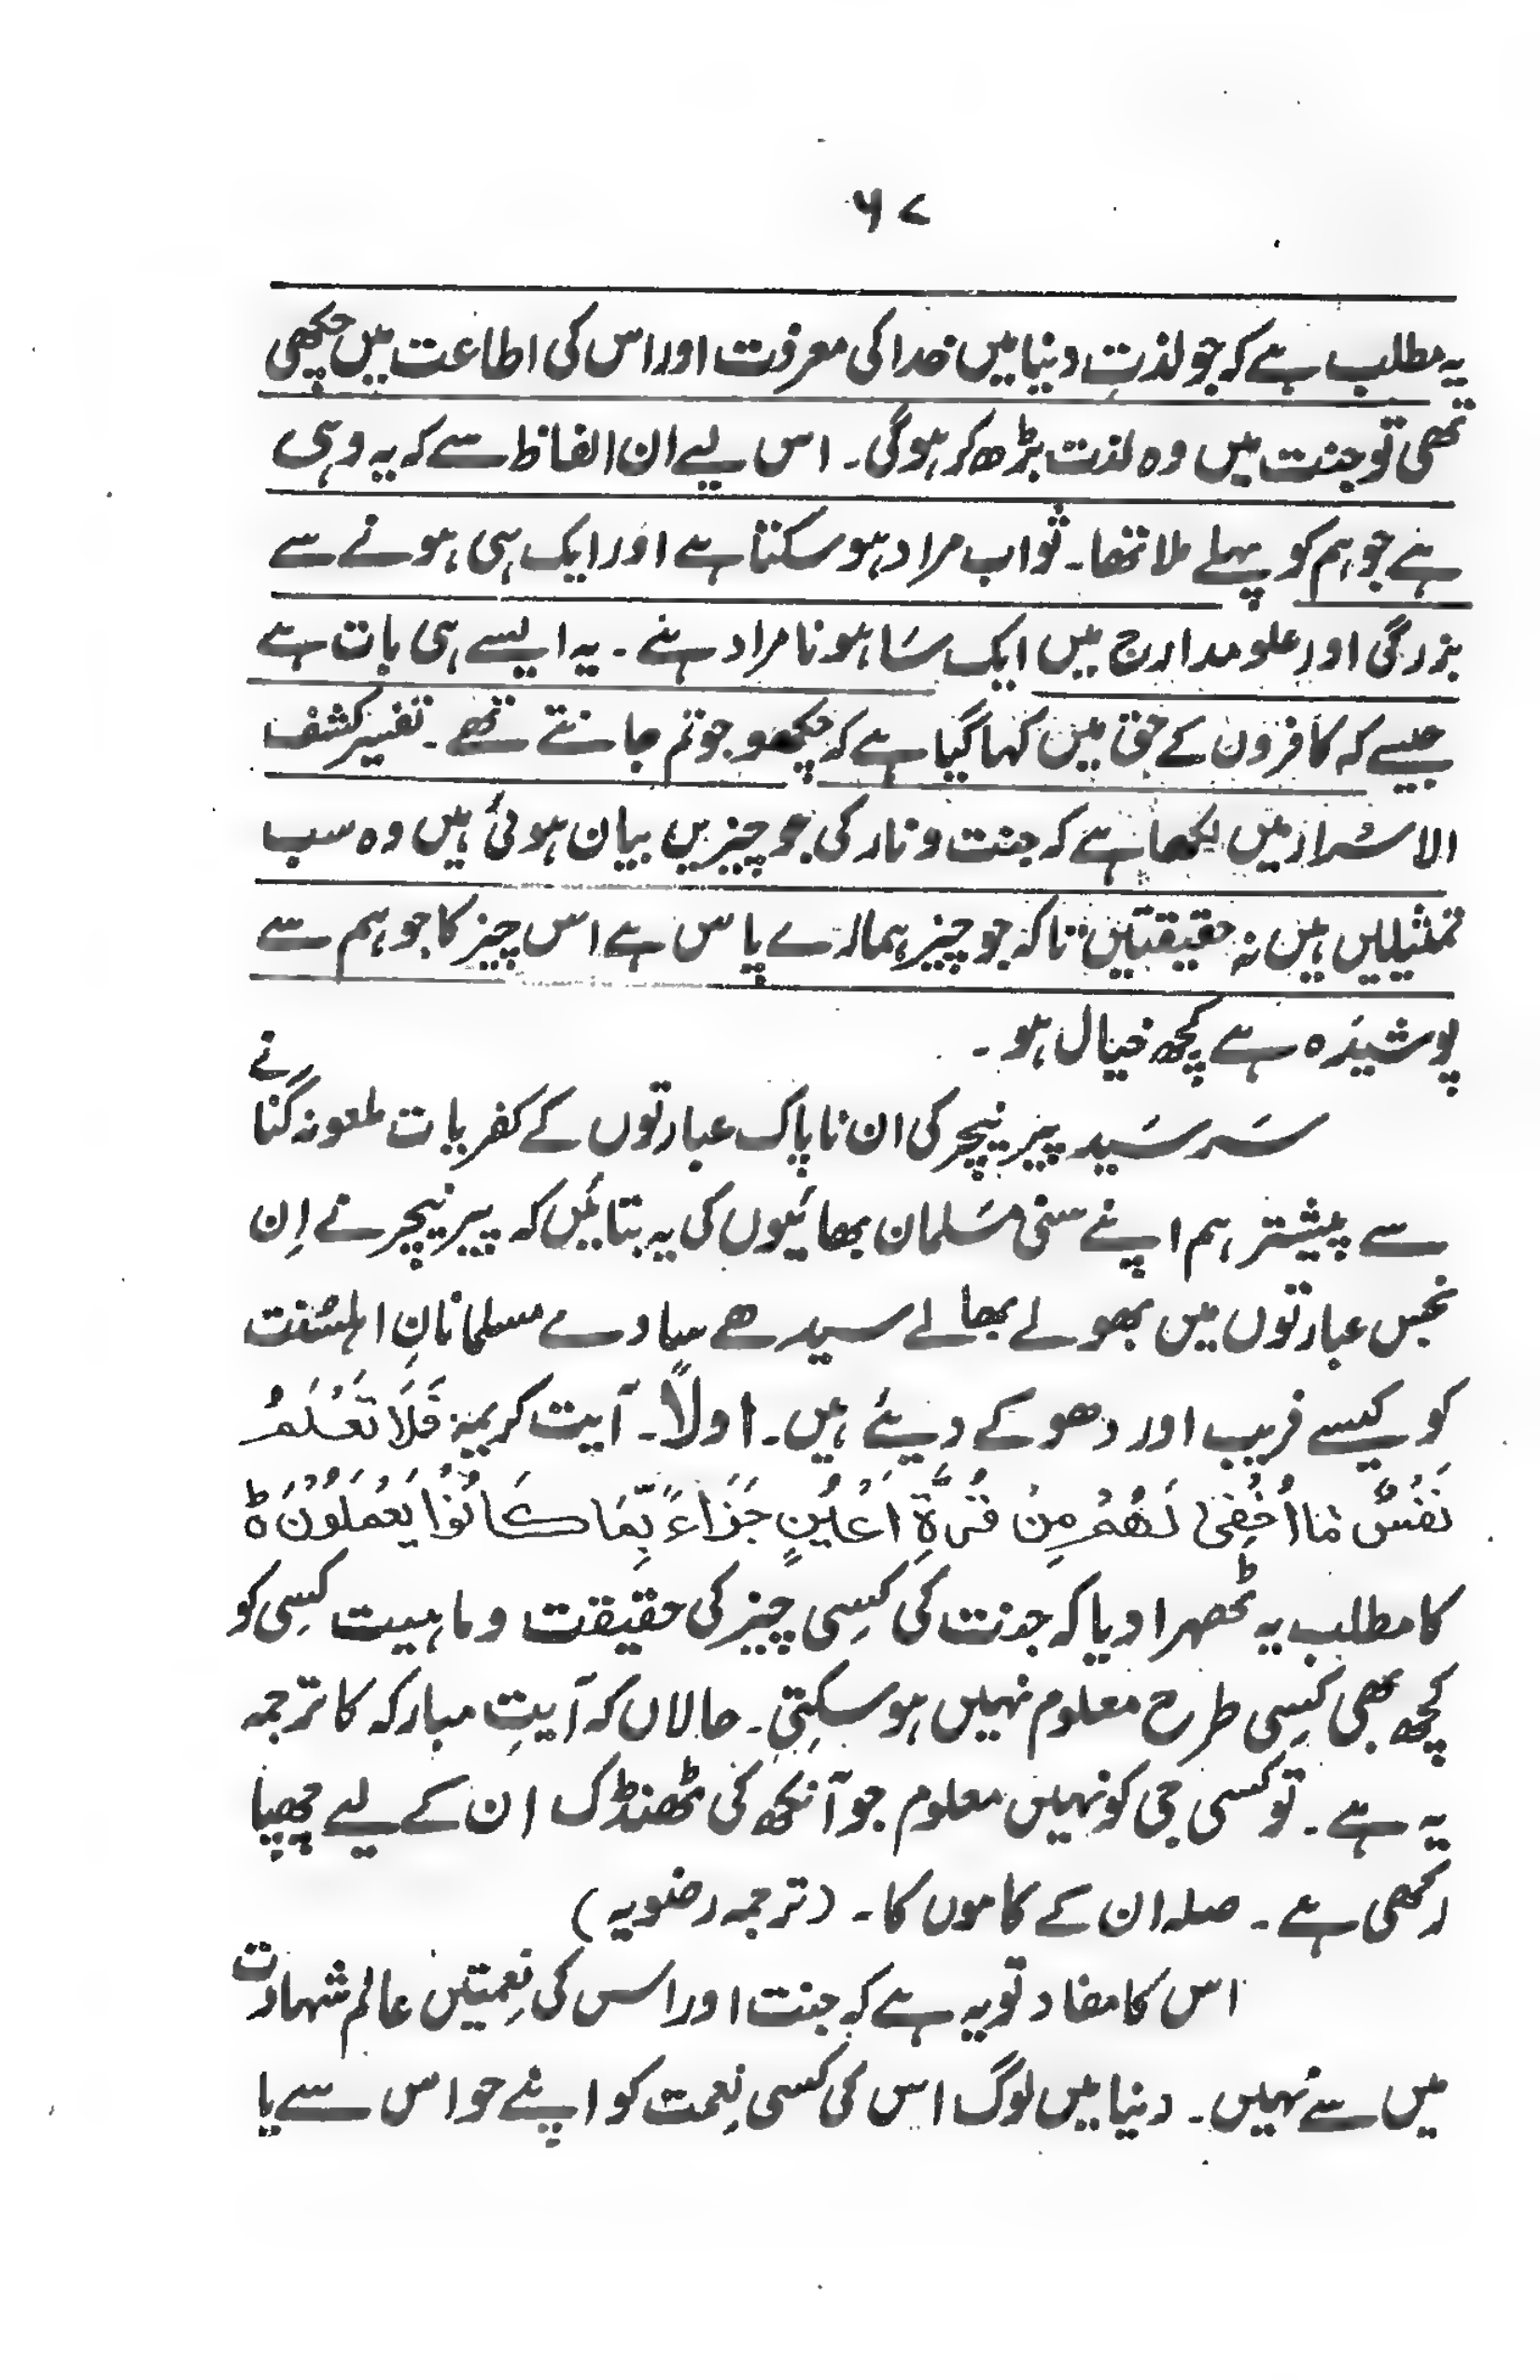 ۶۷
یہ مطلب ہے کہ جو لذتِ دنیا میں خدا کی معرفت اور اس کی اطاعت میں چکھی
تھی تو جنت میں وہ لذت بڑھ کر ہوگی۔ اس لیے ان الفاظ سے کہ یہ وہی
ہے جو ہم کو پہلے ملا تھا۔ ثواب مراد ہو سکتا ہے اور ایک ہی ہونے سے
بزرگی اور علو مدارج میں ایک سا ہونا مراد ہے۔ یہ ایسے ہی بات ہے
جیسے کہ کافروں کے حق میں کہا گیا ہے کہ چکھو جو تم جانتے تھے۔ تفسیر کشف
الاسرار میں لکھا ہے کہ جنت و نار کی جو چیزیں بیان ہوئی ہیں وہ سب
تمثیلیں ہیں نہ حقیقتیں تاکہ جو چیز ہمارے پاس ہے اس چیز کا جو ہم سے
پوشیدہ ہے کچھ خیال ہو۔
سرسید پیر نیچر کی ان ناپاک عبارتوں کے کفریات ملعونہ گنانے
سے پیشتر ہم اپنے سنی مسلمان بھائیوں کی یہ بتائیں کہ پیر نیچر نے اِن
نجس عبارتوں میں بھولے بھالے سیدھے سادے مسلمانانِ اہلسُنت
کو کیسے فریب اور دھوکے دیئے ہیں۔ اولاً۔ آیت کریمہ فَلَا تَعْلَمُ
نَفْسٌ مَّا اُخْفِیَ لَهُمْ مِنْ قُرَّةِ اَعْيُنٍ جَزَاءً بِّمَا كَانُوْا يَعْمَلُوْنَ ہ
کا مطلب یہ ٹھہرا دیا کہ جنت کی کِسی چیز کی حقیقت و ماہیت کِسی کو
کچھ بھی کِسی طرح معلوم نہیں ہو سکتی۔ حالاں کہ آیتِ مبارکہ کا ترجمہ
یہ ہے۔ تو کسی جی کو نہیں معلوم جو آنکھ کی ٹھنڈک ان کے لیے چھپا
رکھی ہے۔ صلہ ان کے کاموں کا۔ (ترجمہ رضویہ)
اس کا مفاد تو یہ ہے کہ جنت اور اس کی نِعمتیں عالم شہادت
میں سے نہیں۔ دنیا میں لوگ اس کی کسی نِعمت کو اپنے حواس سے یا